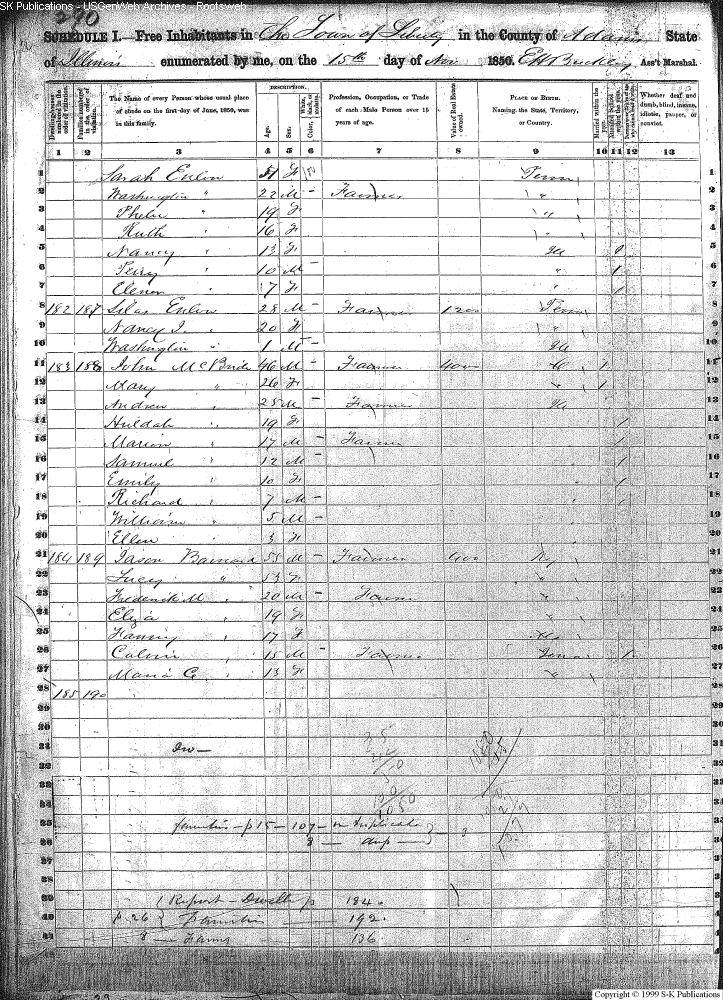 SK Publications - USGenWeb Archives - Rootsweb
290
SCHEDULE I.—Free Inhabitants in The Town of Liberty in the County of Adams State
of Illinois enumerated by me, on the 15th day of Nov 1850. Ass't Marshal.
Dwelling-houses numbered in the order of visitation.
Families numbered in the order of visitation.
The Name of every Person whose usual place of abode on the first day of June, 1850, was in this family.
DESCRIPTION.
Age.
Sex.
Color, White, black, or mulatto.
Profession, Occupation, or Trade of each Male Person over 15 years of age.
Value of Real Estate owned.
PLACE OF BIRTH. Naming the State, Territory, or Country.
Married within the year.
Attended School within the year.
Whether deaf and dumb, blind, insane, idiotic, pauper, or convict.
1 2 3 4 5 6 7 8 9 10 11 12 13
1 Sarah Enlow 51 F Tenn 1
2 Washington " 22 M – Farmer " 2
3 Phebe " 19 F " 3
4 Ruth " 16 F " 4
5 Nancy " 13 F Ill 1 5
6 10 M – " 1 6
7 Elenor " 7 F " 1 7
8 182 187 Silas Enlow 28 M – Farmer 1200 Tenn 8
9 Nancy J. " 20 F " 9
10 Washington " 1 M – Ill 10
11 183 188 John McBride 46 M – Farmer 4000 1 11
12 Mary " 26 F " 1 12
13 Andrew " 25 M – Farmer Ill 13
14 Huldah " 19 F 1 14
15 Marion " 17 M – Farmer 1 15
16 Samuel " 12 M – 1 16
17 Emily " 10 F " 1 17
18 Richard " 7 M – " 1 18
19 William " 5 M – 19
20 Ellen " 3 F 20
21 184 189 Jason Barnard 55 M – Farmer 400 Ky 21
22 Lucy " 53 F " 22
23 Frederick M " 20 M – Farmer " 23
24 Eliza " 19 F " 24
25 Fanny " 17 F 25
26 Calvin " 15 M – Farmer Tenn 1 26
27 Maria C. " 13 F " 27
28 185 190 28
families – p 15 – 107 – in triplicate
8 – dup –
Report – Dwells p 184.
p. 26 families 192.
8 — Farms 136
Copyright © 1999 S-K Publications